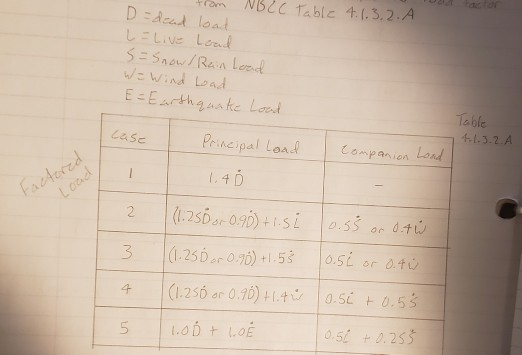 from NBCC Table 4.1.3.2.A
D = dead load
L = Live Load
S = Snow/Rain Load
W = Wind Load
E = Earthquake Load
Table
4.1.3.2.A
Factored
Load
Case Principal Load Companion Load
1 1.4Ḋ -
2 (1.25Ḋ or 0.9Ḋ) + 1.5L̇ 0.5Ṡ or 0.4Ẇ
3 (1.25Ḋ or 0.9Ḋ) + 1.5Ṡ 0.5L̇ or 0.4Ẇ
4 (1.25Ḋ or 0.9Ḋ) + 1.4Ẇ 0.5L̇ + 0.5Ṡ
5 1.0Ḋ + 1.0Ė 0.5L̇ + 0.25Ṡ